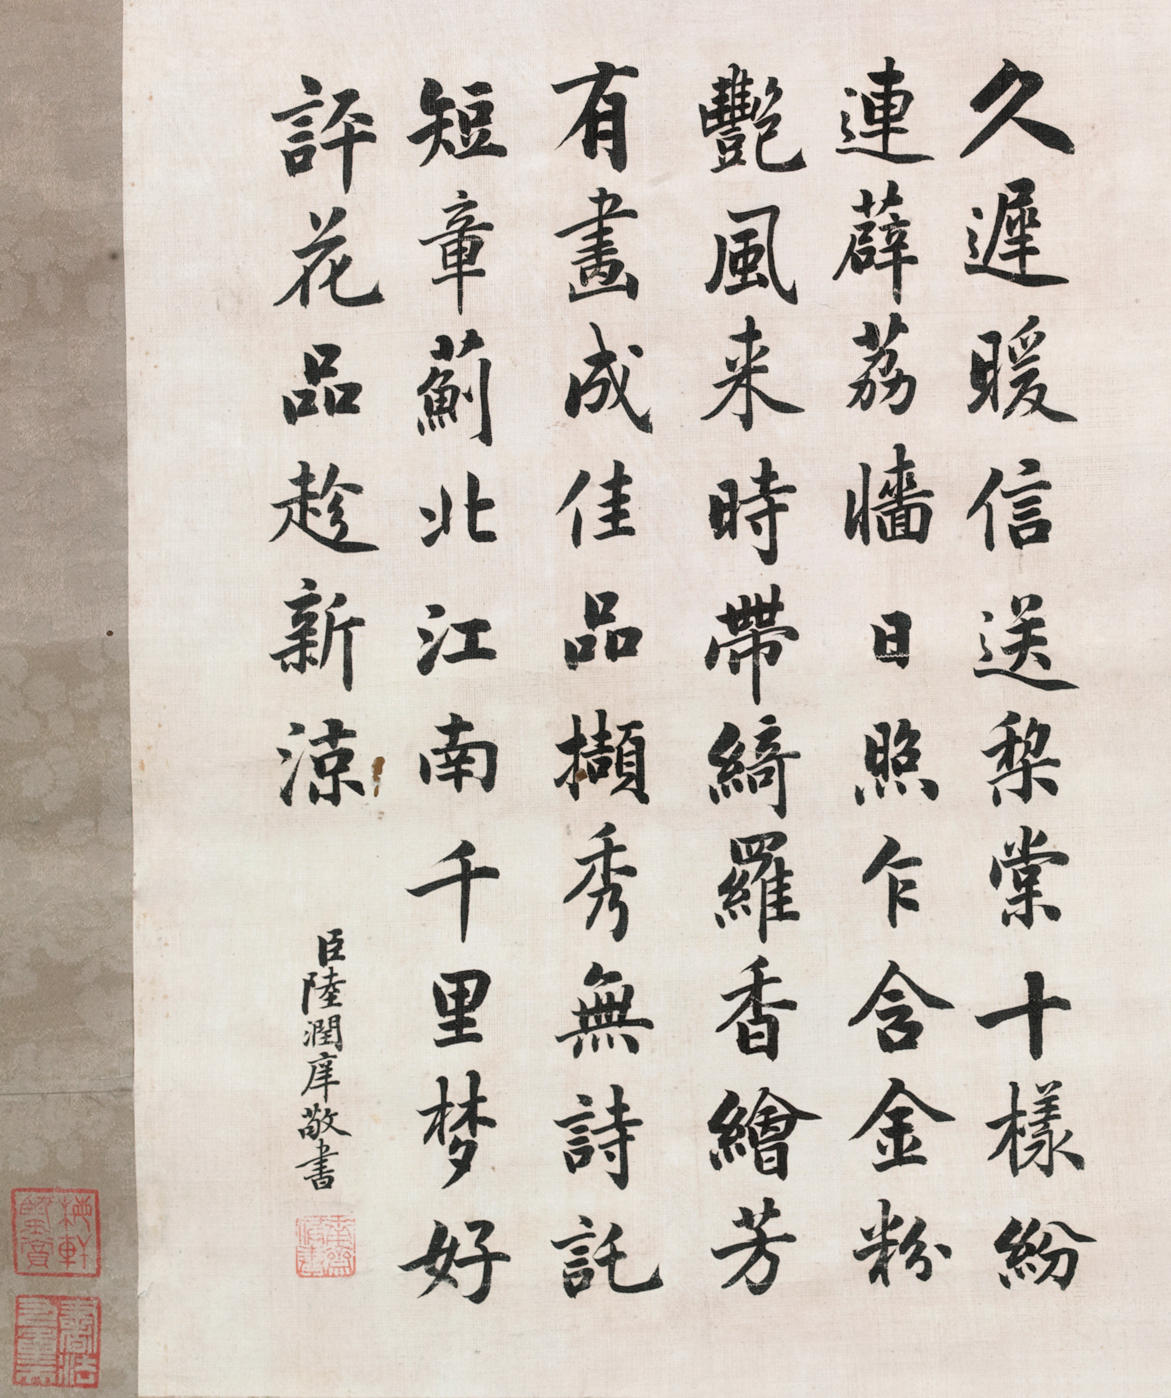 久遲暖信送棃棠十樣紛
連薜荔牆日照乍含金粉
豔風来時帶綺羅香繪芳
有畫成佳品擷秀無詩託
短章薊北江南千里梦好
評花品趁新涼
臣陸潤庠敬書